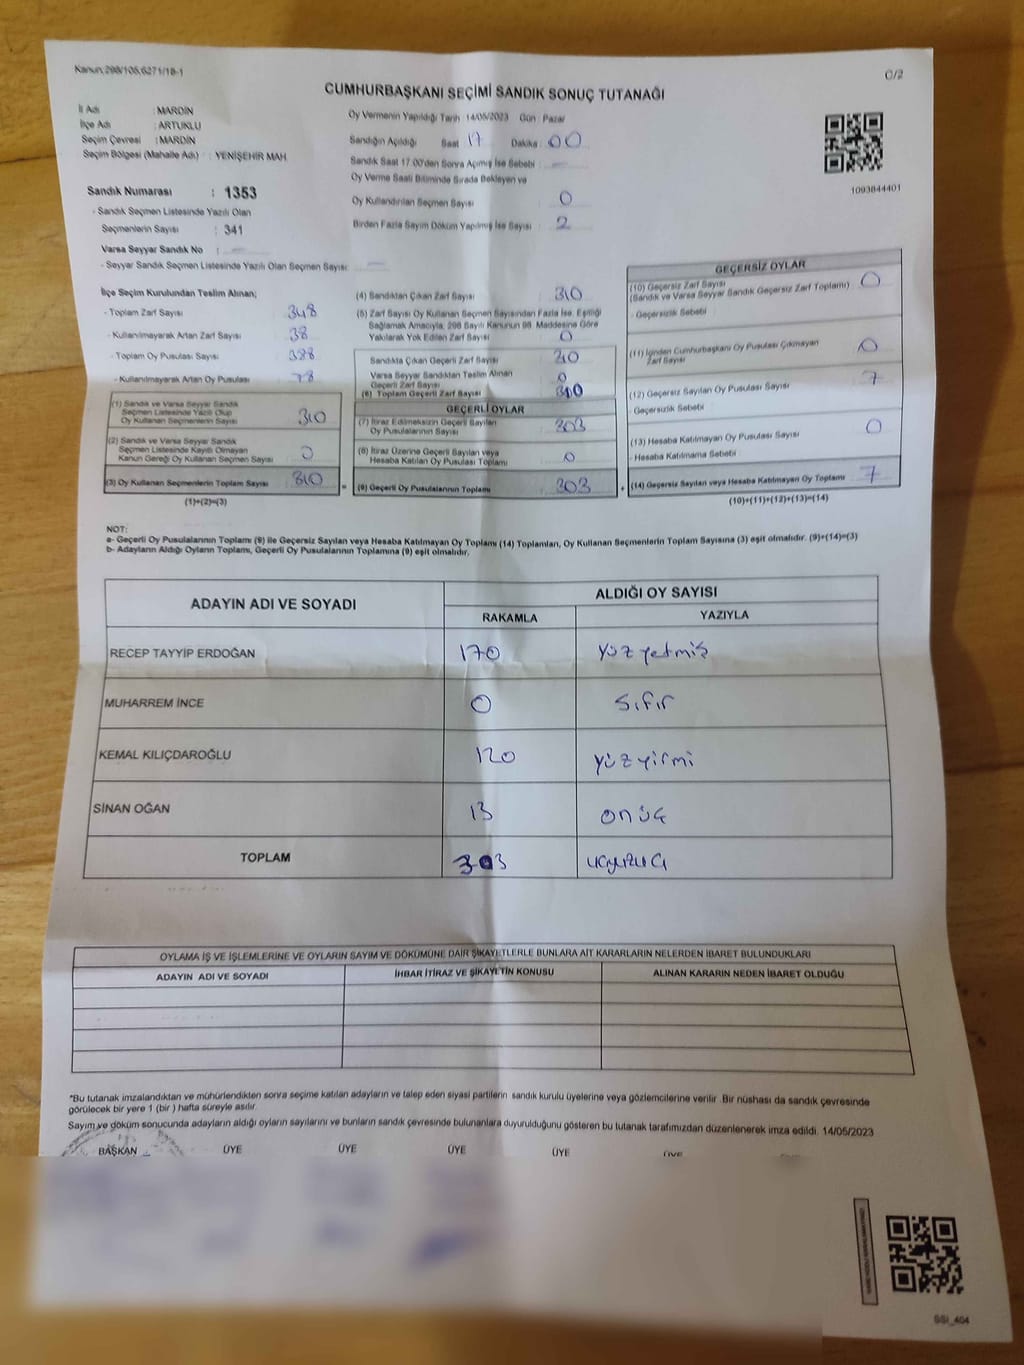 Kanun;298/105;6271/18-1
C/2
CUMHURBAŞKANI SEÇİMİ SANDIK SONUÇ TUTANAĞI
İl Adı : MARDİN
İlçe Adı : ARTUKLU
Seçim Çevresi : MARDİN
Seçim Bölgesi (Mahalle Adı) : YENİŞEHİR MAH
Sandık Numarası : 1353
- Sandık Seçmen Listesinde Yazılı Olan
Seçmenlerin Sayısı : 341
Varsa Seyyar Sandık No : —
- Seyyar Sandık Seçmen Listesinde Yazılı Olan Seçmen Sayısı: —
Oy Vermenin Yapıldığı Tarih :14/05/2023 Gün : Pazar
Sandığın Açıldığı Saat : 17 Dakika : 00
Sandık Saat 17.00'den Sonra Açılmış İse Sebebi : —
Oy Verme Saati Bitiminde Sırada Bekleyen ve
Oy Kullandırılan Seçmen Sayısı : 0
Birden Fazla Sayım Döküm Yapılmış İse Sayısı : 2
1093844401
İlçe Seçim Kurulundan Teslim Alınan;
- Toplam Zarf Sayısı : 348
- Kullanılmayarak Artan Zarf Sayısı : 38
- Toplam Oy Pusulası Sayısı : 388
- Kullanılmayarak Artan Oy Pusulası : 78
(1) Sandık ve Varsa Seyyar Sandık
Seçmen Listesinde Yazılı Olup
Oy Kullanan Seçmenlerin Sayısı : 310
(2) Sandık ve Varsa Seyyar Sandık
Seçmen Listesinde Kayıtlı Olmayan
Kanun Gereği Oy Kullanan Seçmen Sayısı : 0
(3) Oy Kullanan Seçmenlerin Toplam Sayısı : 310
(1)+(2)=(3)
(4) Sandıktan Çıkan Zarf Sayısı : 310
(5) Zarf Sayısı Oy Kullanan Seçmen Sayısından Fazla İse, Eşitliği
Sağlamak Amacıyla, 298 Sayılı Kanunun 98. Maddesine Göre
Yakılarak Yok Edilen Zarf Sayısı : 0
Sandıkta Çıkan Geçerli Zarf Sayısı : 310
Varsa Seyyar Sandıktan Teslim Alınan
Geçerli Zarf Sayısı : 0
(6) Toplam Geçerli Zarf Sayısı : 310
GEÇERLİ OYLAR
(7) İtiraz Edilmeksizin Geçerli Sayılan
Oy Pusulalarının Sayısı : 303
(8) İtiraz Üzerine Geçerli Sayılan veya
Hesaba Katılan Oy Pusulası Toplamı : 0
(9) Geçerli Oy Pusulalarının Toplamı : 303
GEÇERSİZ OYLAR
(10) Geçersiz Zarf Sayısı : 0
(Sandık ve Varsa Seyyar Sandık Geçersiz Zarf Toplamı)
- Geçersizlik Sebebi
(11) İçinden Cumhurbaşkanı Oy Pusulası Çıkmayan
Zarf Sayısı : 0
(12) Geçersiz Sayılan Oy Pusulası Sayısı : 7
- Geçersizlik Sebebi
(13) Hesaba Katılmayan Oy Pusulası Sayısı : 0
- Hesaba Katılmama Sebebi
(14) Geçersiz Sayılan veya Hesaba Katılmayan Oy Toplamı : 7
(10)+(11)+(12)+(13)=(14)
NOT:
a- Geçerli Oy Pusulalarının Toplamı (9) ile Geçersiz Sayılan veya Hesaba Katılmayan Oy Toplamı (14) Toplamları, Oy Kullanan Seçmenlerin Toplam Sayısına (3) eşit olmalıdır. (9)+(14)=(3)
b- Adayların Aldığı Oyların Toplamı, Geçerli Oy Pusulalarının Toplamına (9) eşit olmalıdır.
ADAYIN ADI VE SOYADI
ALDIĞI OY SAYISI
RAKAMLA YAZIYLA
RECEP TAYYİP ERDOĞAN 170 yüz yetmiş
MUHARREM İNCE 0 sıfır
KEMAL KILIÇDAROĞLU 120 yüz yirmi
SİNAN OĞAN 13 onüç
TOPLAM 303 üçyüzüç
OYLAMA İŞ VE İŞLEMLERİNE VE OYLARIN SAYIM VE DÖKÜMÜNE DAİR ŞİKAYETLERLE BUNLARA AİT KARARLARIN NELERDEN İBARET BULUNDUKLARI
ADAYIN ADI VE SOYADI İHBAR İTİRAZ VE ŞİKAYETİN KONUSU ALINAN KARARIN NEDEN İBARET OLDUĞU
*Bu tutanak imzalandıktan ve mühürlendikten sonra seçime katılan adayların ve talep eden siyasi partilerin sandık kurulu üyelerine veya gözlemcilerine verilir. Bir nüshası da sandık çevresinde
görülecek bir yere 1 (bir ) hafta süreyle asılır.
Sayım ve döküm sonucunda adayların aldığı oyların sayılarını ve bunların sandık çevresinde bulunanlara duyurulduğunu gösteren bu tutanak tarafımızdan düzenlenerek imza edildi. 14/05/2023
BAŞKAN ÜYE ÜYE ÜYE ÜYE ÜYE
SSİ_404